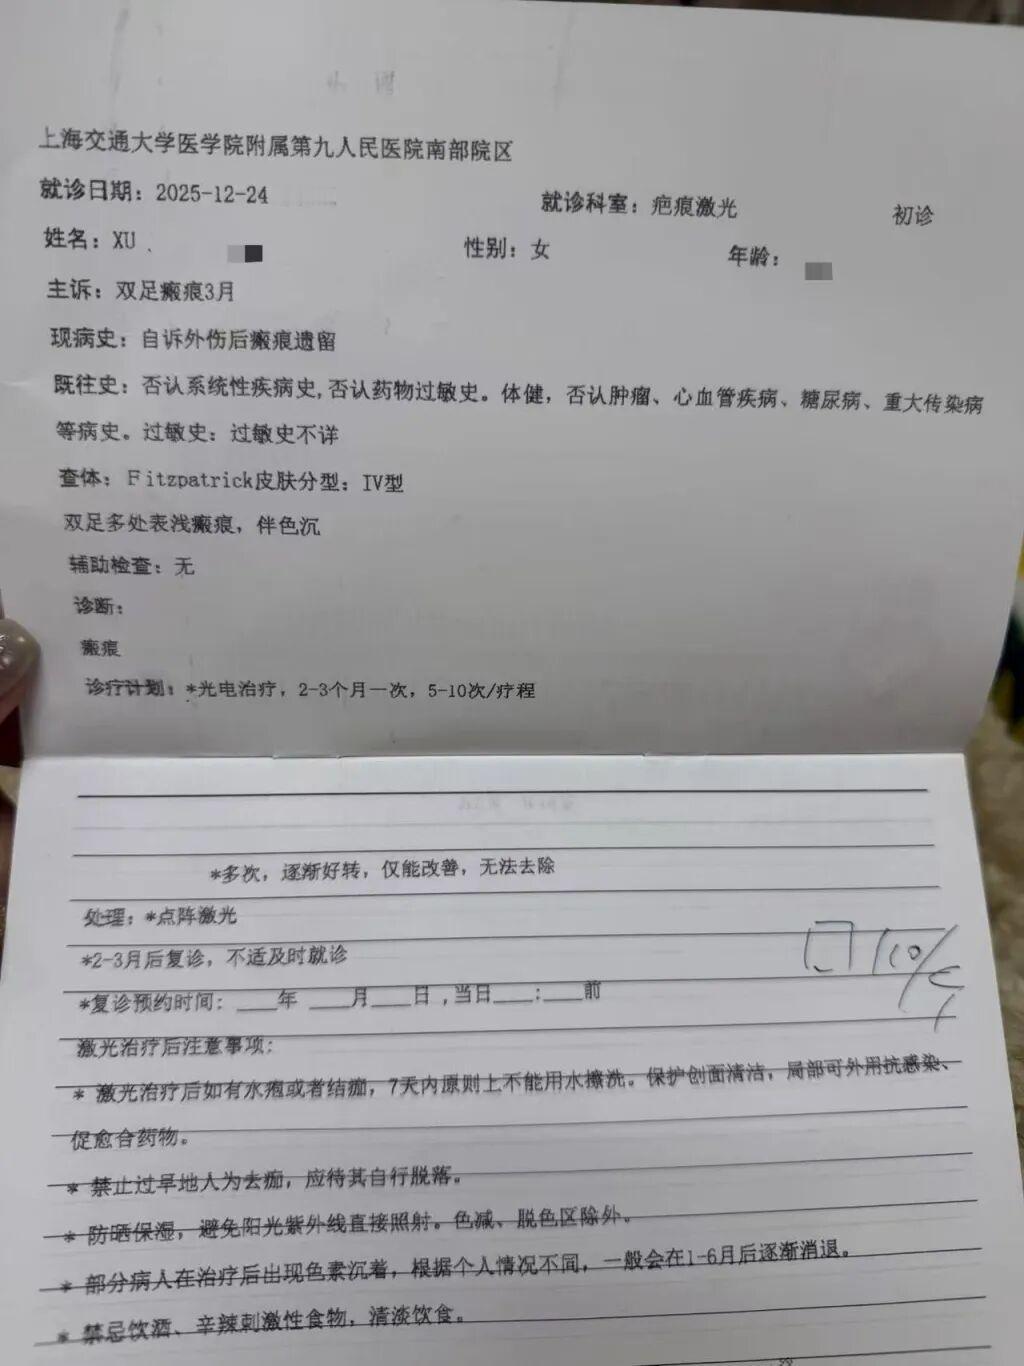 上海交通大学医学院附属第九人民医院南部院区
就诊日期：2025-12-24 就诊科室：疤痕激光 初诊
姓名：XU 性别：女 年龄：
主诉：双足瘢痕3月
现病史：自诉外伤后瘢痕遗留
既往史：否认系统性疾病史,否认药物过敏史。体健，否认肿瘤、心血管疾病、糖尿病、重大传染病
等病史。过敏史：过敏史不详
查体：Fitzpatrick皮肤分型：IV型
双足多处表浅瘢痕，伴色沉
辅助检查：无
诊断：
瘢痕
诊疗计划：*光电治疗，2-3个月一次，5-10次/疗程
*多次，逐渐好转，仅能改善，无法去除
处理：*点阵激光
*2-3月后复诊，不适及时就诊
*复诊预约时间：____年 ____月____日 ,当日____:____前
激光治疗后注意事项:
* 激光治疗后如有水疱或者结痂，7天内原则上不能用水擦洗。保护创面清洁，局部可外用抗感染、
促愈合药物。
* 禁止过早地人为去痂，应待其自行脱落。
* 防晒保湿，避免阳光紫外线直接照射。色减、脱色区除外。
* 部分病人在治疗后出现色素沉着，根据个人情况不同，一般会在1-6月后逐渐消退。
* 禁忌饮酒、辛辣刺激性食物，清淡饮食。